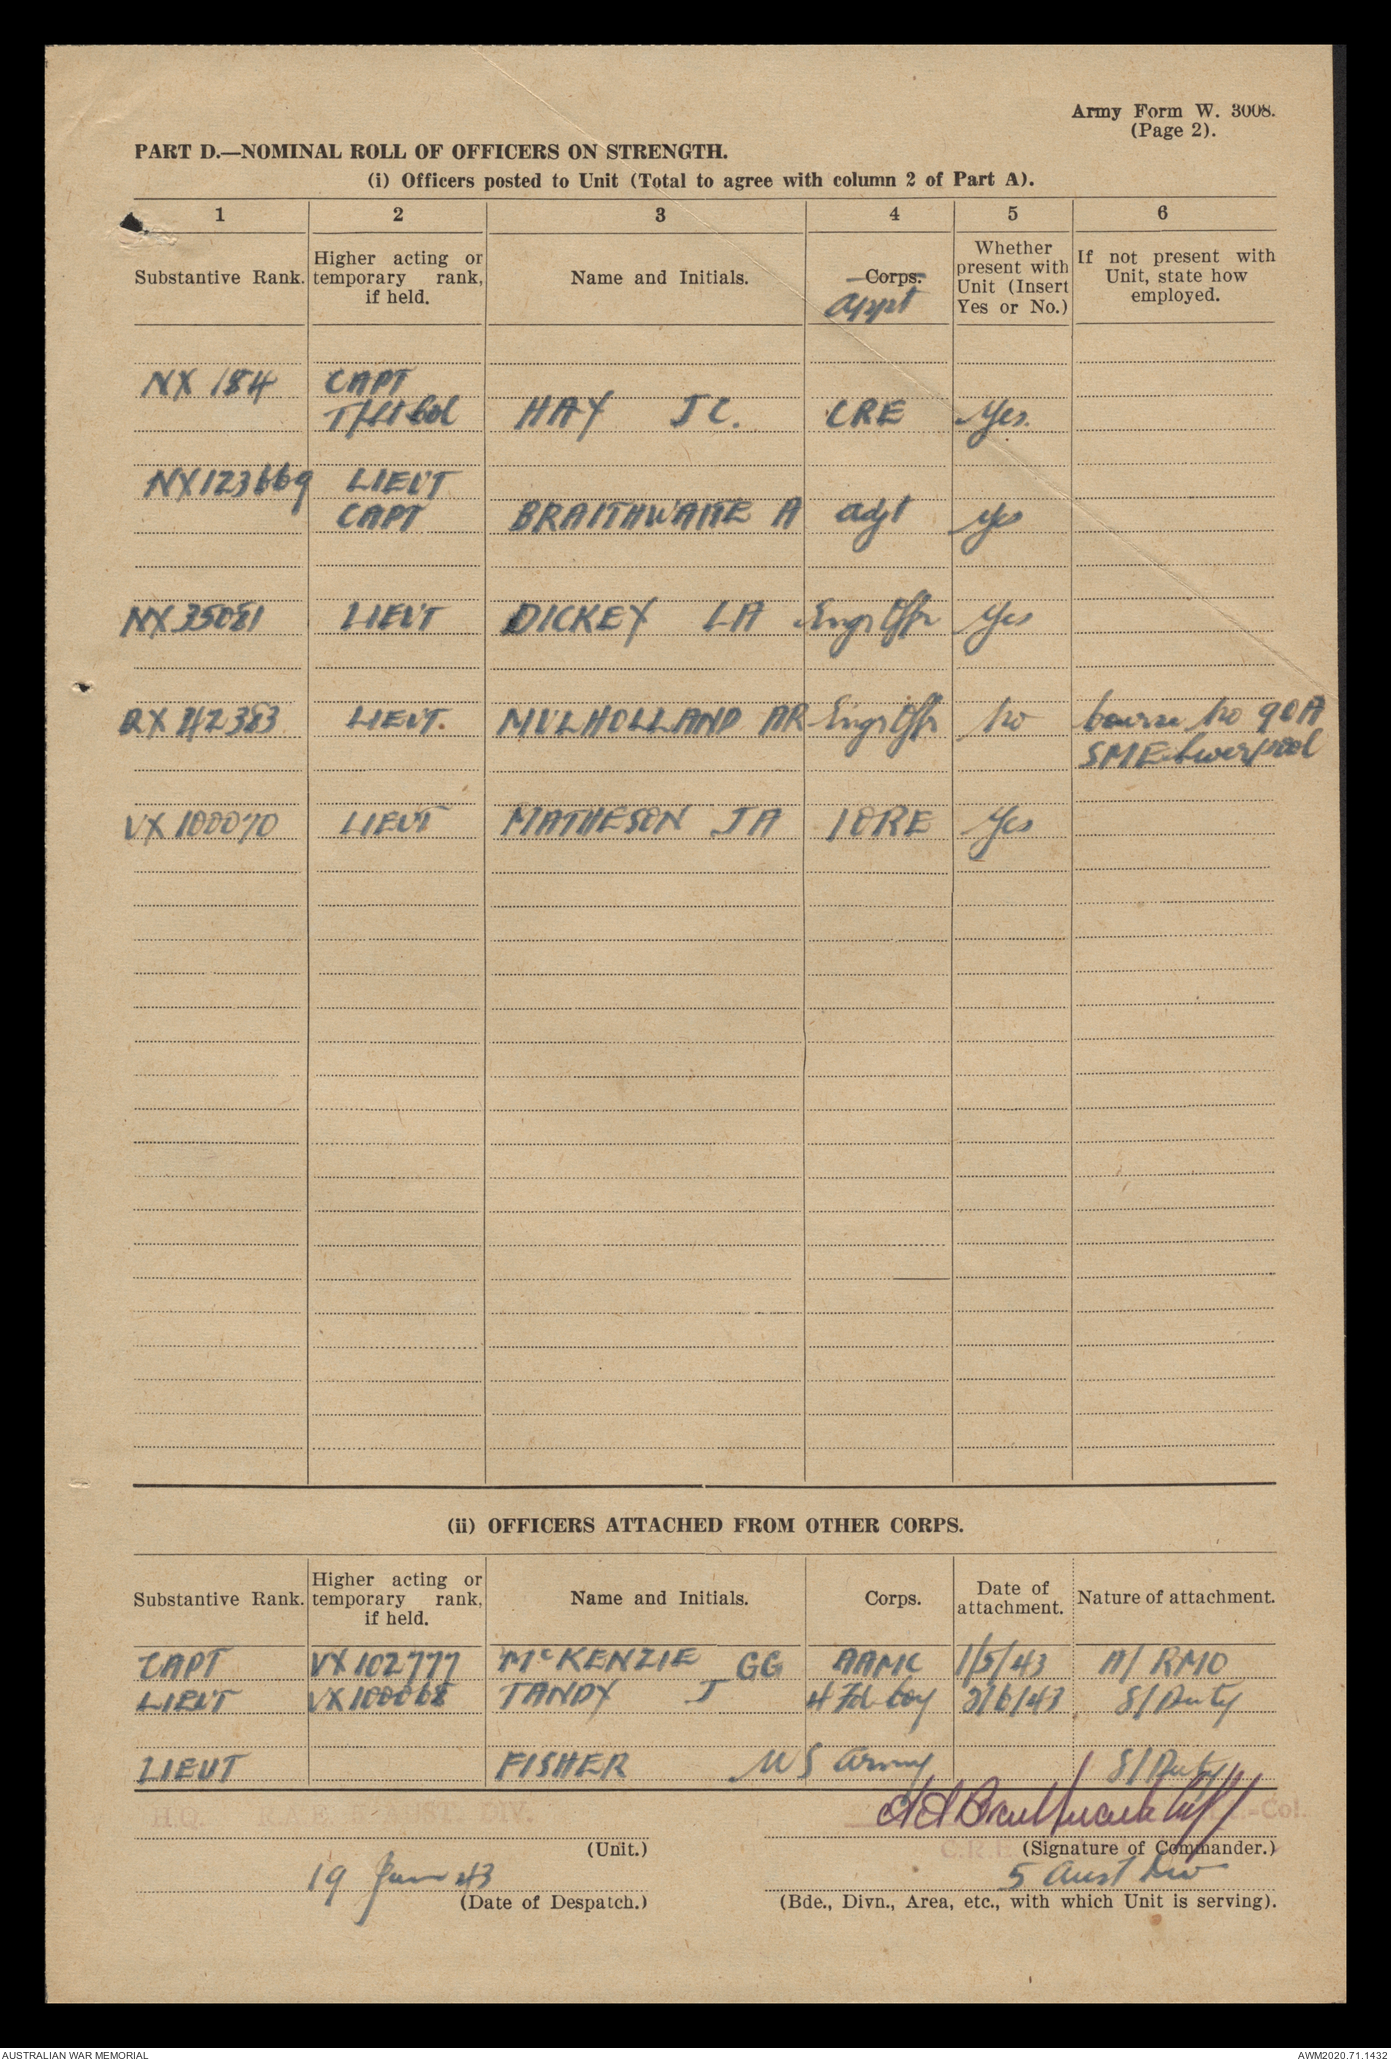 Army Form W. 3008.
(Page 2).
PART D.—NOMINAL ROLL OF OFFICERS ON STRENGTH.
(i) Officers posted to Unit (Total to agree with column 2 of Part A).
1 2 3 4 5 6
Substantive Rank. Higher acting or temporary rank, if held. Name and Initials. Corps. Appt Whether present with Unit (Insert Yes or No.) If not present with Unit, state how employed.
NX 184 CAPT
T/Lt Col HAY J C. CRE Yes.
NX123669 LIEUT
CAPT BRAITHWAITE A adjt yes
NX35081 LIEUT DICKEY LA Engr Offr Yes
QX42383 LIEUT. MULHOLLAND AR Engr Offr No Course No 90A
SME Liverpool
VX100070 LIEUT MATHESON JA IORE Yes
(ii) OFFICERS ATTACHED FROM OTHER CORPS.
Substantive Rank. Higher acting or temporary rank, if held. Name and Initials. Corps. Date of attachment. Nature of attachment.
CAPT VX102777 McKENZIE GG AAMC 1/5/43 A/ RMO
LIEUT VX100068 TANDY J 4 Fd Coy 2/6/43 S/Duty
LIEUT FISHER US Army S/Duty
H.Q. R.A.E. 5 AUST. DIV. Lt.-Col.
C.R.E.
(Unit.) (Signature of Commander.)
19 Jun 43 5 Aust Div
(Date of Despatch.) (Bde., Divn., Area, etc., with which Unit is serving).
AUSTRALIAN WAR MEMORIAL AWM2020.71.1432